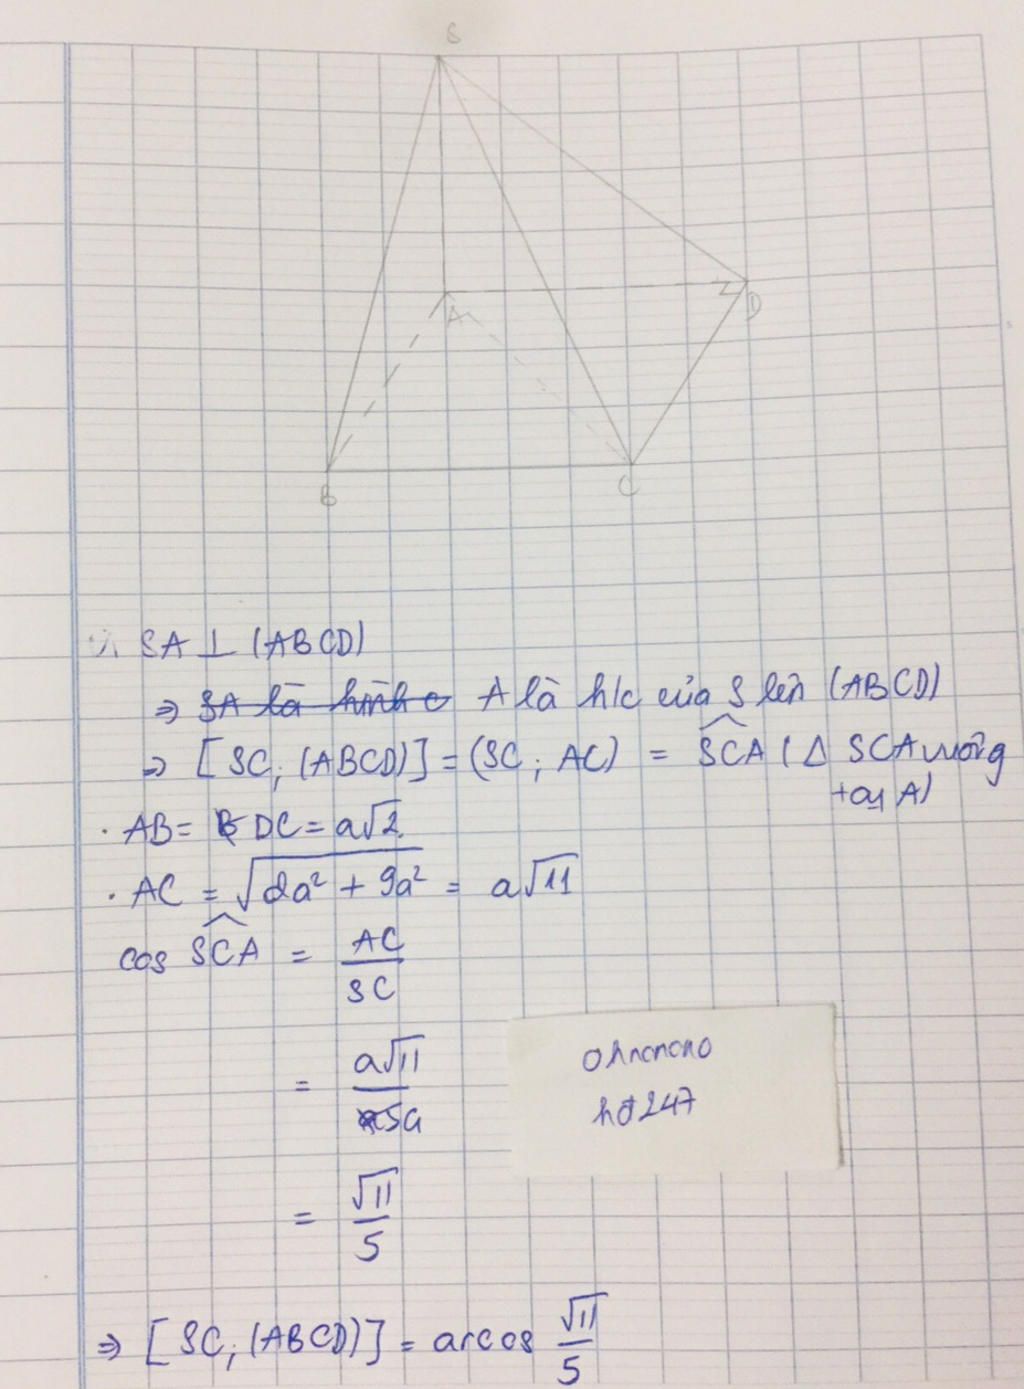 S
A
D
B
C
SA ⊥ (ABCD)
⇒ SA là hình c A là h/c của S lên (ABCD)
⇒ [SC; (ABCD)] = (SC; AC) = SCA (Δ SCA vuông
tại A)
· AB = DC = a√2
· AC = √2a² + 9a² = a√11
cos SCA = AC
SC
= a√11
5a
= √11
5
ohnonono
hđ247
⇒ [SC; (ABCD)] = arcos √11
5